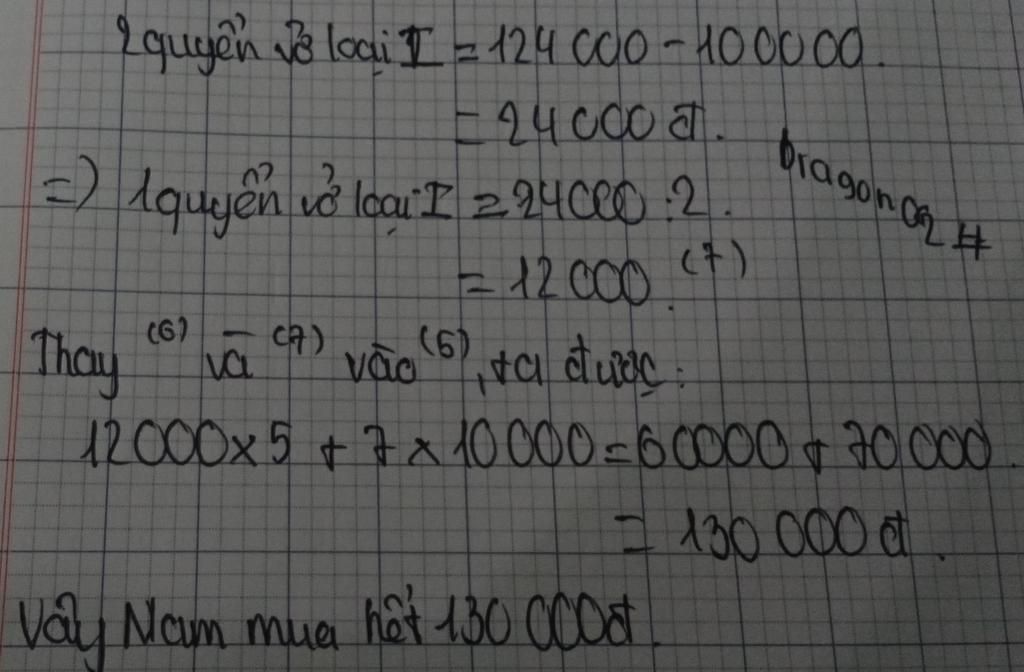 2 quyển vở loại I = 124 000 - 100 000.
= 24 000 đ.
Dragon092#
=) 1 quyển vở loại I = 24 000 : 2.
= 12 000. (7)
Thay (6) và (7) vào (5), ta được:
12 000 x 5 + 7 x 10 000 = 60 000 + 70 000.
= 130 000 đ.
Vậy Nam mua hết 130 000đ.